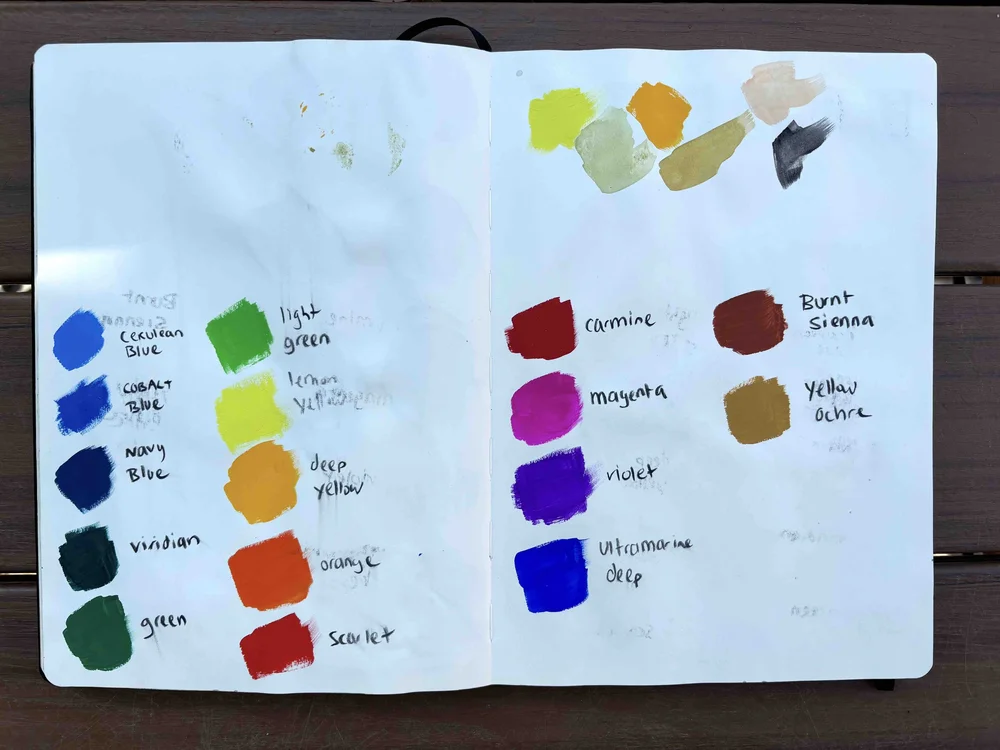 Cerulean
Blue
COBALT
Blue
Navy
Blue
viridian
green
light
green
lemon
Yellow
deep
yellow
orange
Scarlet
Carmine
magenta
violet
Ultramarine
deep
Burnt
Sienna
Yellow
Ochre